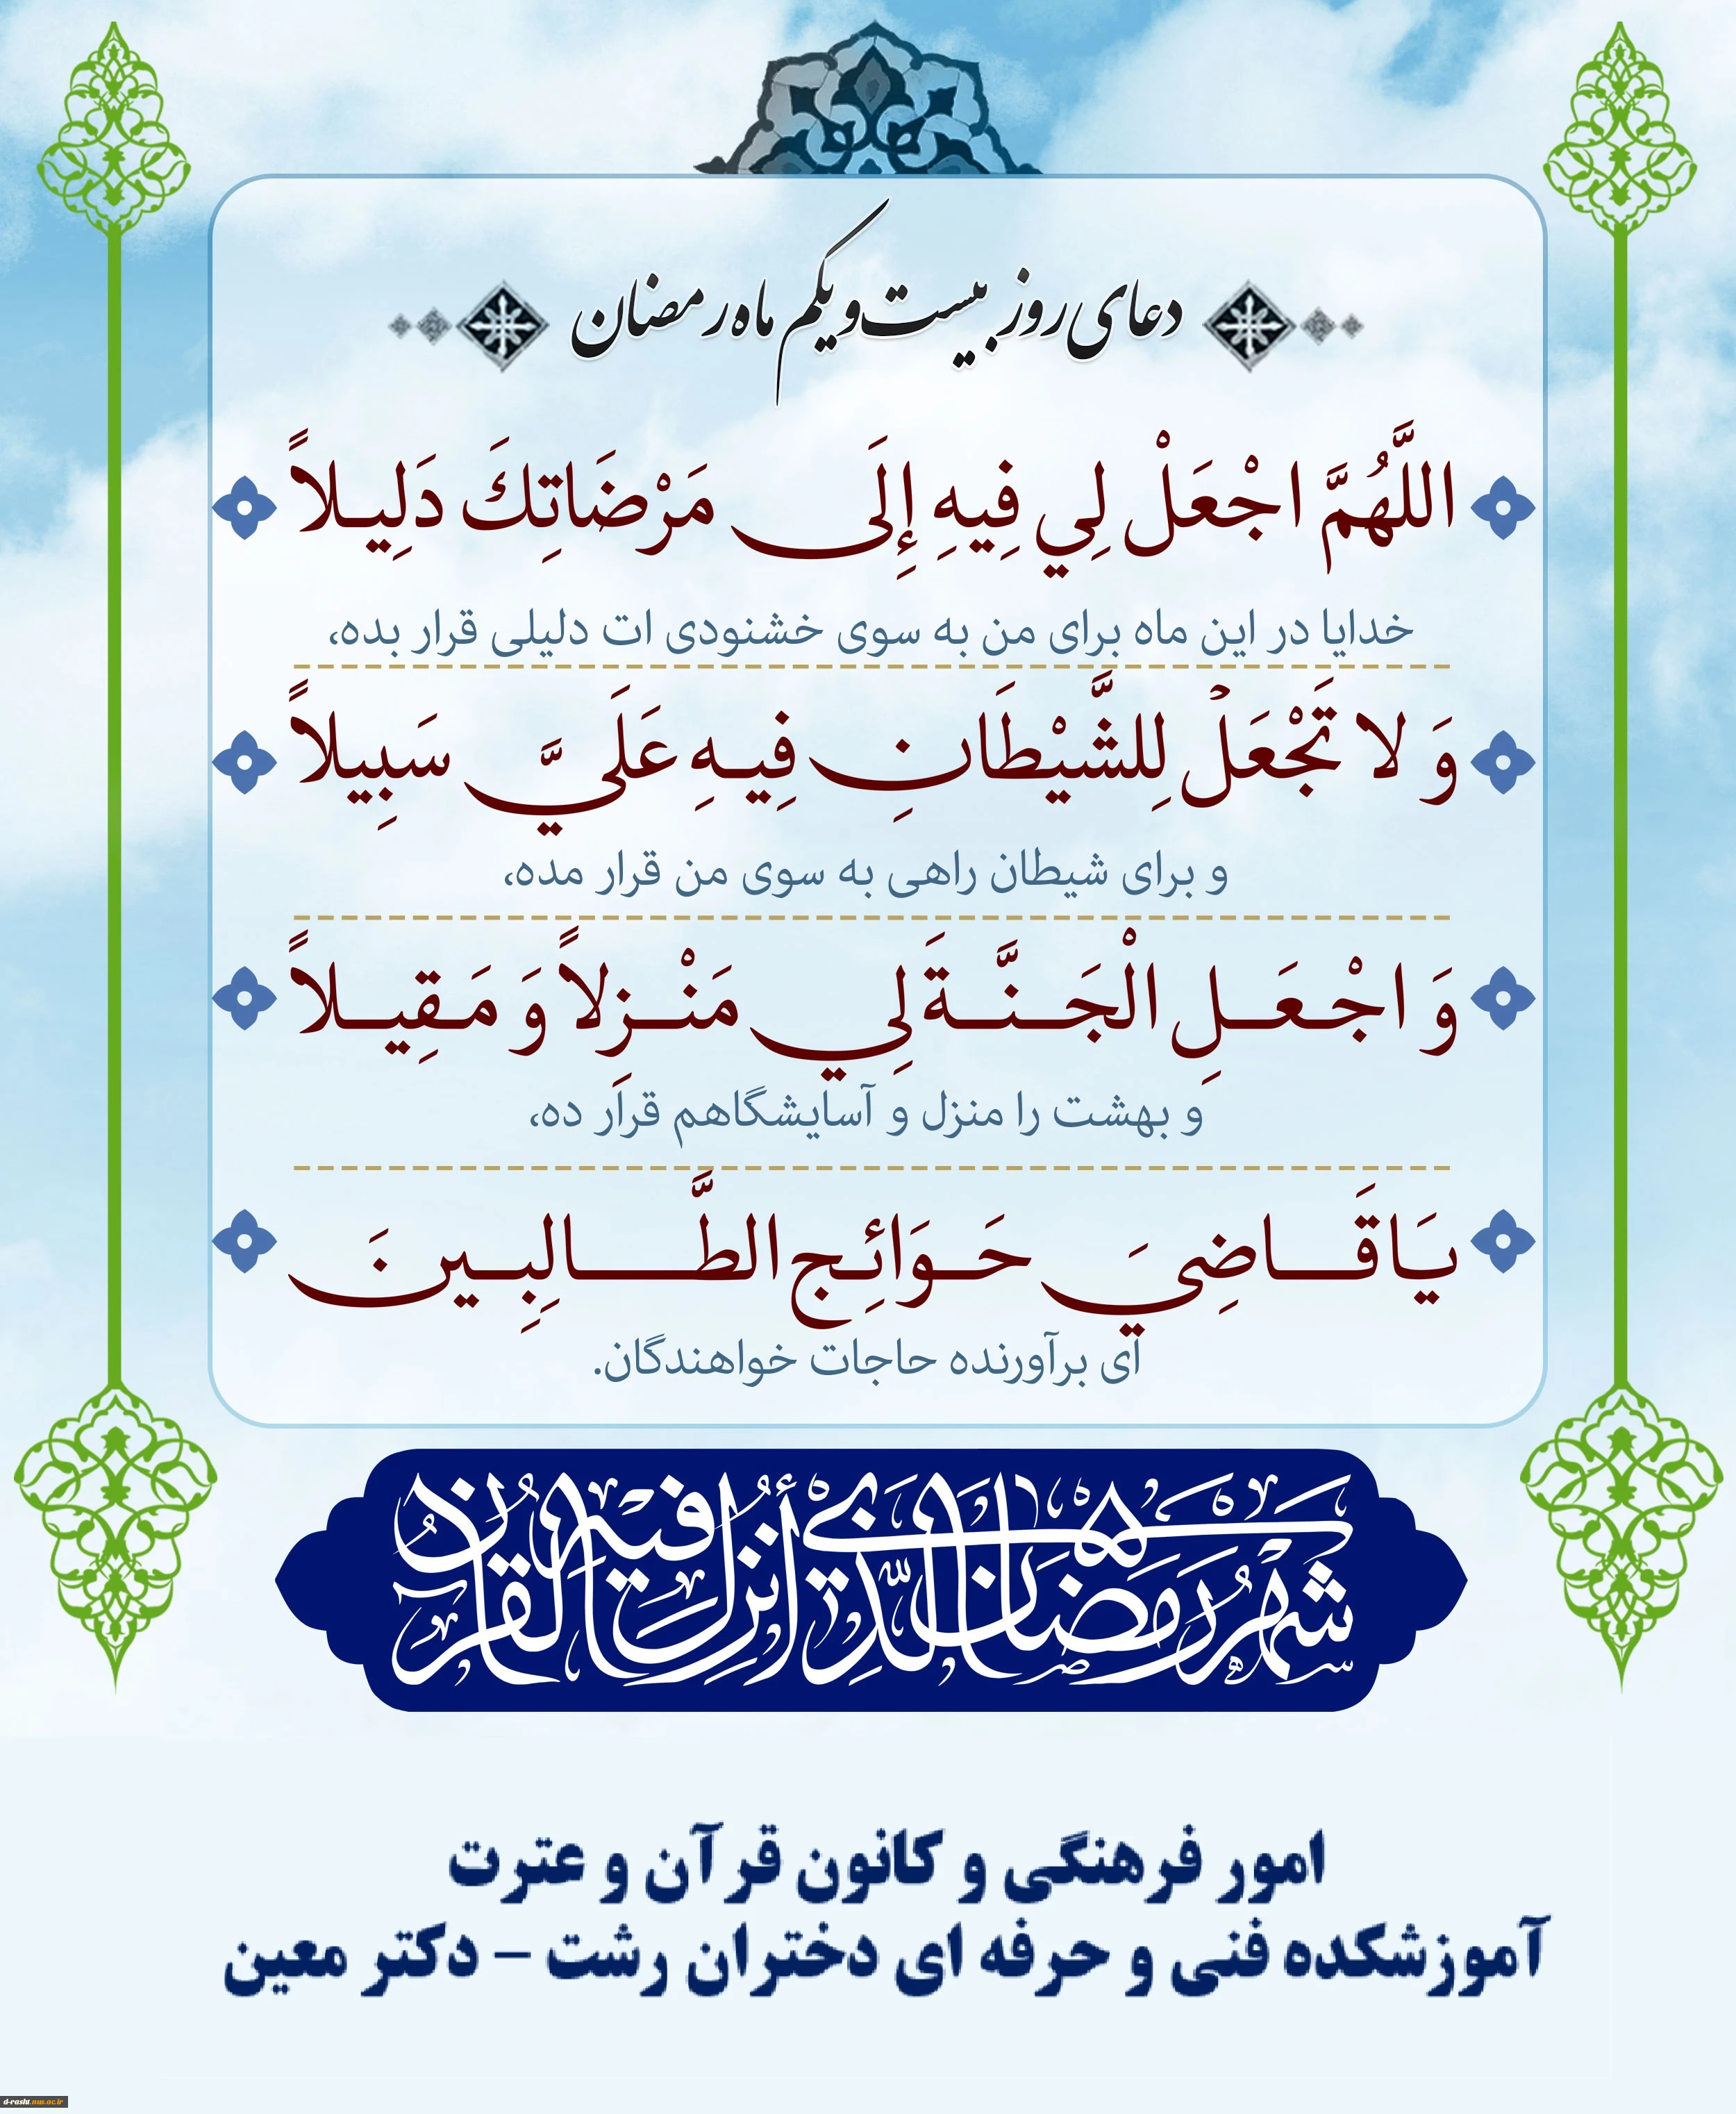 دعای روز بیست و یکم ماه رمضان
اللَّهُمَّ اجْعَلْ لِي فِيهِ إِلَى مَرْضَاتِكَ دَلِيلاً
خدایا در این ماه برای من به سوی خشنودی ات دلیلی قرار بده،
وَ لا تَجْعَلْ لِلشَّيْطَانِ فِيهِ عَلَيَّ سَبِيلاً
و برای شیطان راهی به سوی من قرار مده،
وَ اجْعَلِ الْجَنَّةَ لِي مَنْزِلاً وَ مَقِيلاً
و بهشت را منزل و آسایشگاهم قرار ده،
يَا قَاضِيَ حَوَائِجِ الطَّالِبِينَ
ای برآورنده حاجات خواهندگان.
شهر رمضان الذي أنزل فيه القرآن
امور فرهنگی و کانون قرآن و عترت
آموزشکده فنی و حرفه ای دختران رشت – دکتر معین
d-rasht.nus.ac.ir